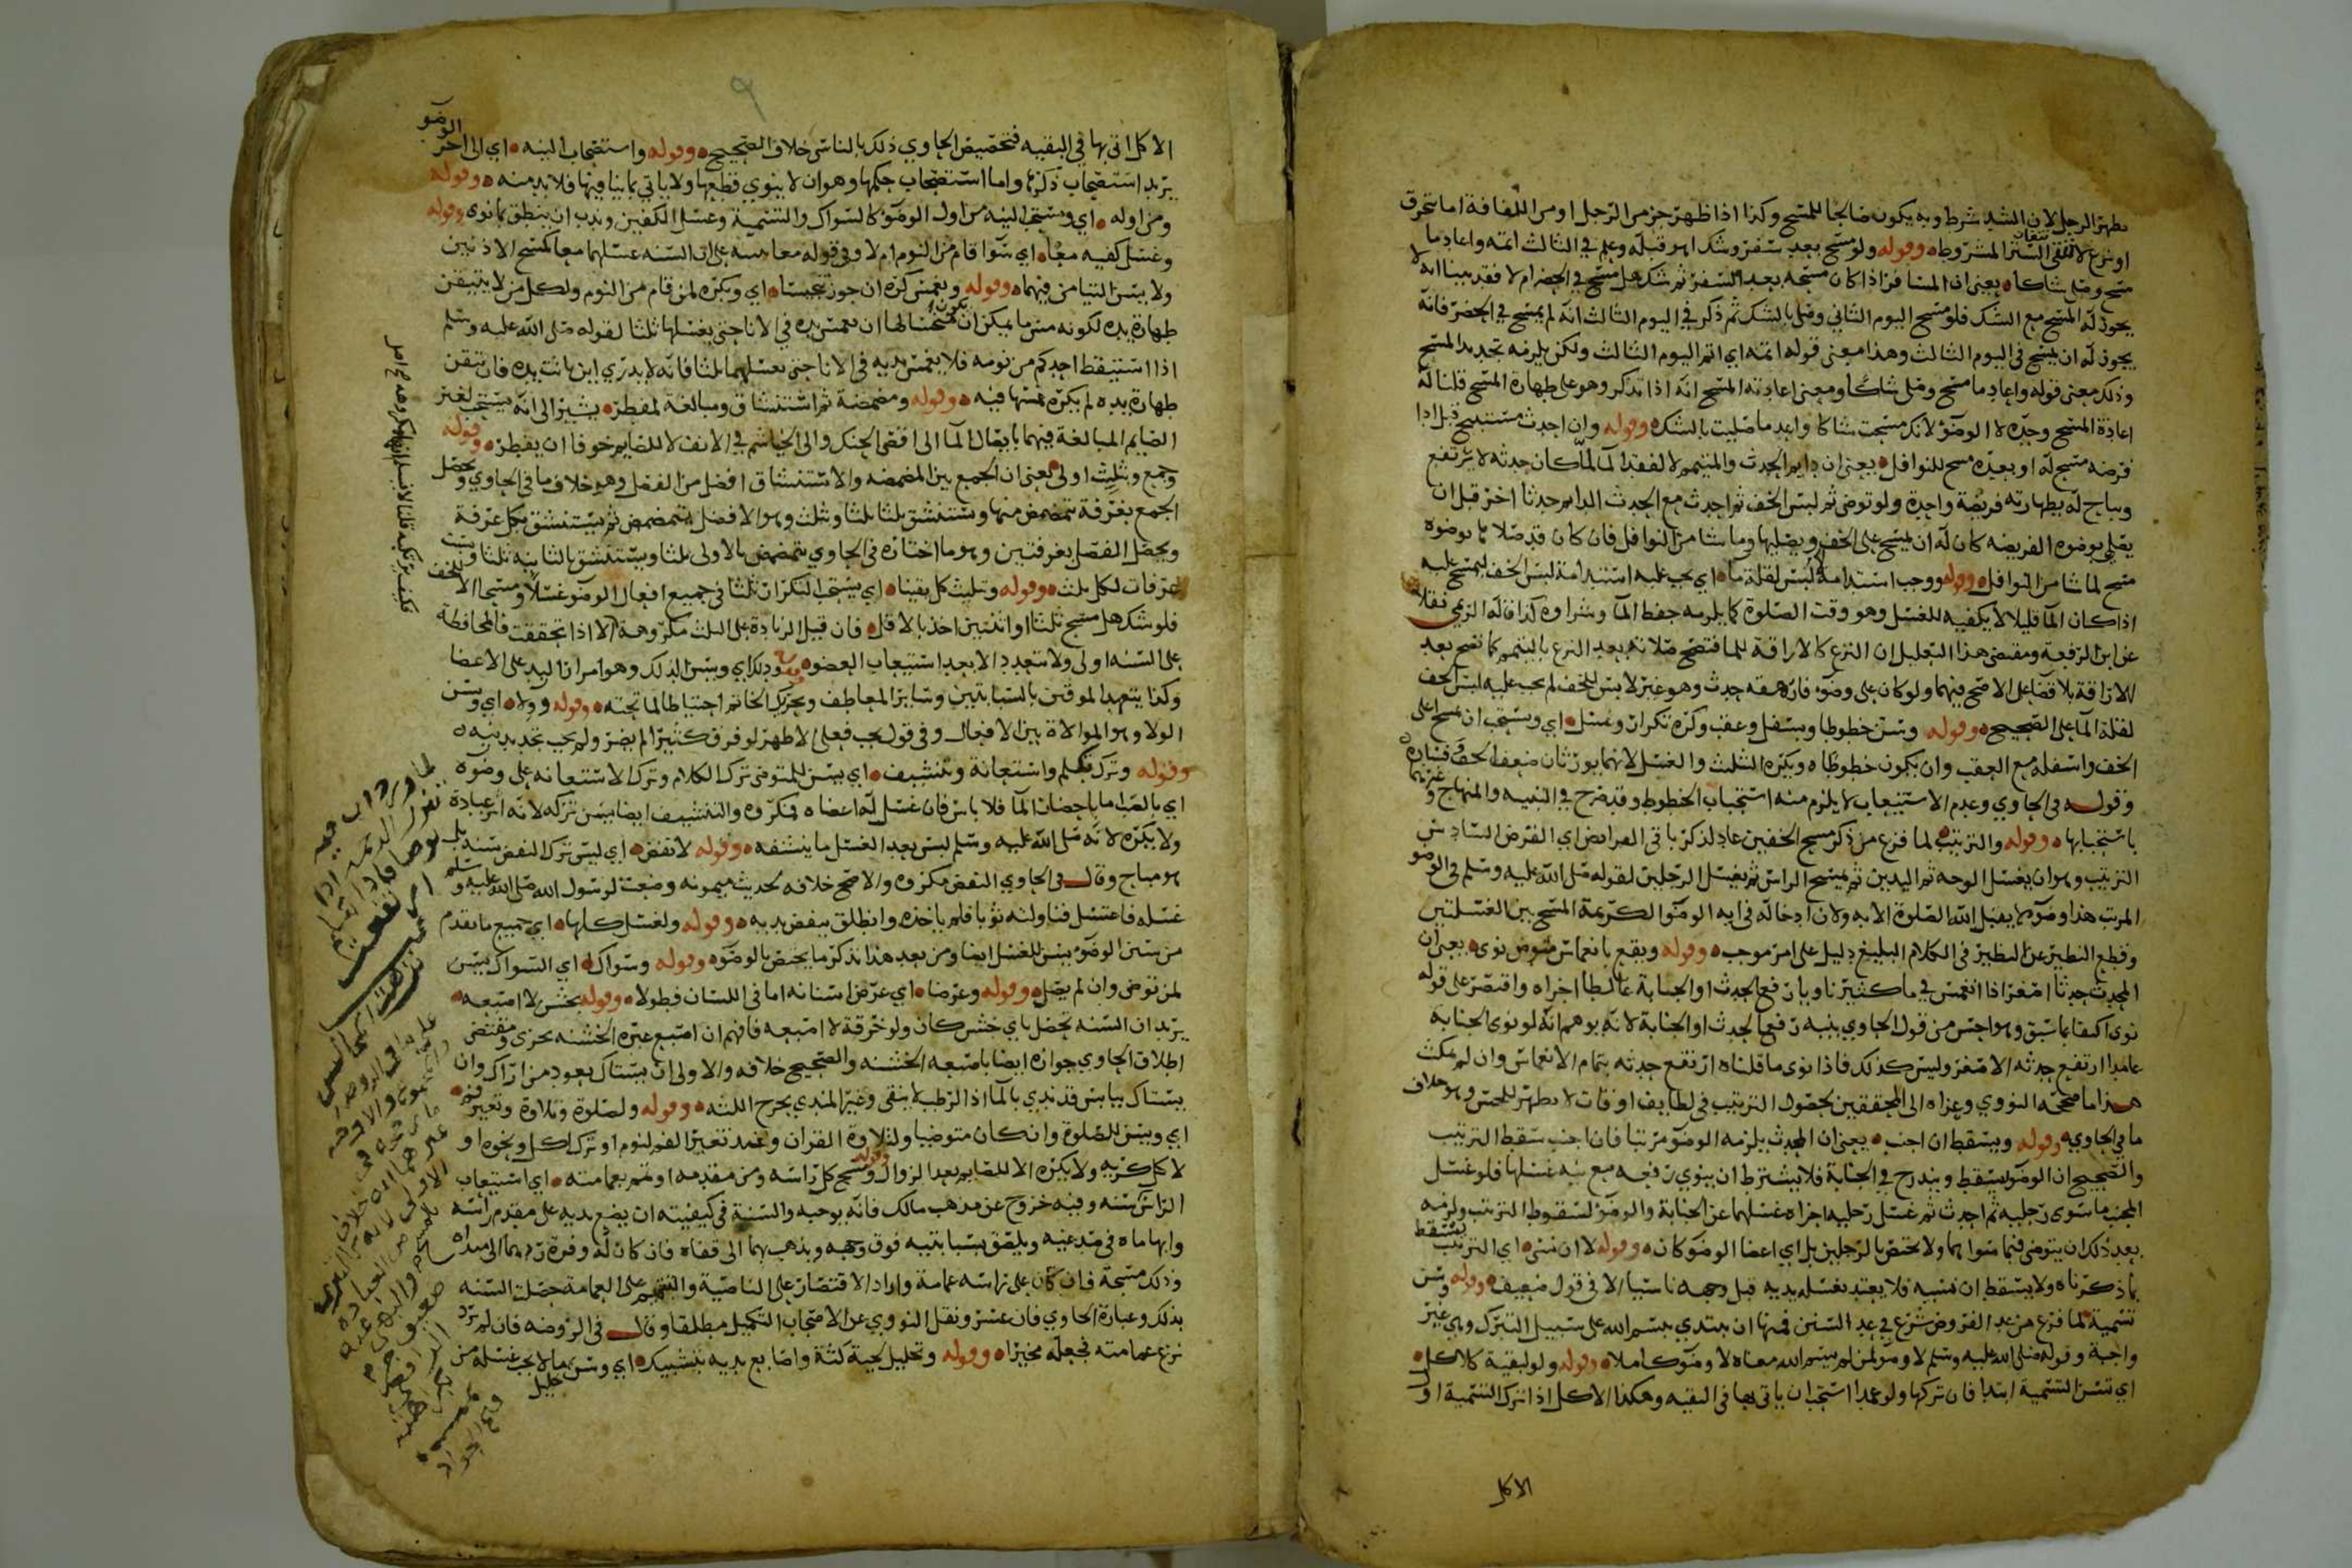 يطهر الرجل لان الشد شرط وبه يكون صالحا للمسح وكذا اذا ظهر جزمن الرجل او من اللفافة اما بتخرق
او شرج لانتفاء الستر المشروط وقوله ولو مسح بعد سفر وشك اهو قبله وعلم في الثالث اتمه واعاد ما
مسح وصلى شاكا يعني ان المسافر اذا كان مسحه بعد السفر ثم شك هل مسح في الحضر ام لا فقد بينا انه لا
يجوز له المسح مع الشك فلو مسح اليوم الثاني وصلى بالشك ثم ذكر في اليوم الثالث انه لم يمسح في الحضر فانه
يجوز له ان يمسح في اليوم الثالث وهذا معنى قوله اتمه اي اتم اليوم الثالث ولكن يلزمه تجديد المسح
وذلك معنى قوله واعاد ما مسح وصلى شاكا ومعنى اعادته المسح انه اذا تذكر وهو على طهارة المسح قلنا له
اعادة المسح وحده لا الوضؤ لانك مسحت شاكا واعد ما صليت بالشك وقوله وان احدث مستبيح قبل اذا
فرضه مسح له او بعده مسح للنوافل يعني ان دايم الحدث والمتيمم لا لفقد الما لما كان حدثه لا يرتفع
ويباح له بطهارته فريضة واحدة ولو توضى ثم لبس الخف ثم احدث مع الحدث الدايم حدثا اخر قبل ان
يصلي بوضوه الفريضه كان له ان يمسح على الخف ويصليها وما شا من النوافل فان كان قد صلاها بوضوه
مسح لما شا من النوافل وقوله ووجب استدامة لبس لقلة ما اي يجب عليه استدامة لبس الخف ليمسح عليه
اذا كان الما قليلا لا يكفيه للغسل وهو وقت الصلوة كما يلزمه حفظ الما وشراوه كذا قاله الزيمي نقلا
عن ابن الرفعة ومقتضى هذا التعليل ان النزع كالاراقة للما فتصح صلاته بعد النزع بالتيمم كما تصح بعد
الاراقة بلا قضا على الاصح فيهما ولو كان على وضؤ فارهقه حدث وهو غير لابس للخف لم يجب عليه لبس الخف
لقلة الما على الصحيح وقوله وسن خطوطا وبسفل وعقب وكره تكرار وغسل اي ويستحب ان يمسح اعلى
الخف واسفله مع العقب وان يكون خطوطا ويكره التثليث والغسل لانهما يورثان ضعف الخف وفساده
وقوله في الحاوي وعدم الاستيعاب لا يلزم منه استحباب الخطوط وقد صرح في التنبيه والمنهاج وغيرهما
باستحبابها وقوله والترتيب لما فرغ من ذكر مسح الخفين عاد لذكر باقي الفرايض اي الفرض السادس
الترتيب وهو ان يغسل الوجه ثم اليدين ثم يمسح الراس ثم يغسل الرجلين لقوله صلى الله عليه وسلم في الوضو
المرتب هذا وضؤ لا يقبل الله الصلوة الا به ولان ادخاله في اية الوضؤ الكريمة المسح بين الغسلتين
وقطع النظير عن النظير في الكلام البليغ دليل على امر موجب وقوله ويقع بانغماس متوض نوى يعني ان
المحدث حدثا اصغر اذا انغمس في ما كثير ناويا رفع الحدث او الجنابة غالطا اجزاه واقتصر على قوله
نوى اكتفا بما سبق وهو احسن من قول الحاوي بنية رفع الحدث او الجنابة لانه يوهم انه لو نوى الجنابة
عامدا ارتفع حدثه الاصغر وليس كذلك فاذا نوى ما قلناه ارتفع حدثه بتمام الانغماس وان لم يمكث
هذا ما صححه النووي وعزاه الى المحققين لحصول الترتيب في لطايف اوقات لا يظهر للحس وهو خلاف
ما في الحاوي وقوله ويسقط ان اجنب يعني ان المحدث يلزمه الوضؤ مرتبا فان اجنب سقط الترتيب
والصحيح ان الوضؤ يسقط ويندرج في الجنابة فلا يشترط ان ينوي رفعه مع نية غسلها فلو غسل
الجنب ما سوى رجليه ثم احدث ثم غسل رجليه اجزاه غسلهما عن الجنابة والوضؤ لسقوط الترتيب ولزمه
بعد ذلك ان يتوضى فيما سواهما ولا يختص بالرجلين بل اي اعضا الوضؤ كان وقوله لا ان نسى اي الترتيب يسقط
بما ذكرناه ولا يسقط ان نسيه فلا يعتد بغسل يديه قبل وجهه ناسيا الا في قول ضعيف وقوله وسن
تسمية لما فرغ من عد الفروض شرع في عد السنن فمنها ان يبتدي ببسم الله على سبيل التبرك وهي غير
واجبة وقوله صلى الله عليه وسلم لا وضؤ لمن لم يسم الله معناه لا وضؤ كاملا وقوله ولو لبقية كلاكل
اي تسن التسمية ابتدا فان تركها ولو عمدا استحب ان ياتي بها في البقيه وهكذا الاكل اذا ترك التسمية اول
الاكل
٩
الاكل اتى بها في البقيه فتخصيص الحاوي ذلك بالناسي خلاف الصحيح وقوله واستصحاب النيه اي الى اخر الوضو
يريد استصحاب ذكرها واما استصحاب حكمها وهو ان لا ينوي قطعها ولا ياتي بما ينافيها فلا بد منه وقوله
ومن اوله اي ويستحب النيه من اول الوضؤ كالسواك والتسمية وغسل الكفين وندب ان ينطق بما نوى وقوله
وغسل كفيه معا اي سوا قام من النوم ام لا وفي قوله معا تنبيه على ان السنه غسلهما معا كمسح الاذنين
ولا يسن التيامن فيهما وقوله وبغمس كره ان جوز نجسا اي ويكره لمن قام من النوم ولكل من لا يتيقن
طهارة يده لكونه مس ما يمكن ان يكون منجسا لها ان يغمس يده في الانا حتى يغسلها ثلثا لقوله صلى الله عليه وسلم
اذا استيقظ احدكم من نومه فلا يغمس يديه في الانا حتى يغسلهما ثلثا فانه لا يدري اين باتت يده فان تيقن
طهارة يده لم يكره غمسها فيه وقوله ومضمضة ثم استنشاق ومبالغة لمفطر يشير الى انه يستحب لغير
الصايم المبالغة فيهما بايصال الما الى اقصى الحنك والى الخياشم في الانف لا للصايم خوفا ان يفطر وقوله
وجمع وبثلث اولى يعني ان الجمع بين المضمضه والاستنشاق افضل من الفصل وهو خلاف ما في الحاوي ويحصل
الجمع بغرفة يتمضمض منها ويستنشق ثلثا ثلثا وبثلث وهو الافضل يتمضمض ثم يستنشق بكل غرفة
ويحصل الفصل بغرفتين وهو ما اختاره في الحاوي يتمضمض بالاولى ثلثا ويستنشق بالثانيه ثلثا وبست
غرفات لكل ثلث وقوله وتثليث كل يقينا اي يستحب التكرار ثلثا في جميع افعال الوضؤ غسلا ومسحا الا الخف
فلو شك هل مسح ثلثا او اثنتين اخذ بالاقل فان قيل الزيادة على الثلث مكروهة الا اذا تحققت فالمحافظة
على السنه اولى ولا يتعدد الا بعد استيعاب العضو وقوله ودلك اي ويسن الدلك وهو امرار اليد على الاعضا
وكذا يتعهد الموقين بالسبابتين وساير المعاطف ويحرك الخاتم احتياطا لما تحته وقوله وولا اي ويسن
الولا وهو الموالاة بين الافعال وفي قول يجب فعلى الاظهر لو فرق كثيرا لم يضر ولم يجب تجديد نيه
وقوله وترك تكلم واستعانة وتنشيف اي يسن للمتوضى ترك الكلام وترك الاستعانه على وضوه
اي بالصب اما باحضار الما فلا باس فان غسل له اعضاه فمكروه والتنشيف ايضا يسن تركه لانه اثر عبادة
ولا يكره لانه صلى الله عليه وسلم لبس بعد الغسل ما ينشفه وقوله لا نفض اي ليس ترك النفض سنه بل
هو مباح وقال في الحاوي النفض مكروه والاصح خلافه لحديث ميمونه وضعت لرسول الله صلى الله عليه وسلم
غسله فاغتسل فناولته ثوبا فلم ياخذه وانطلق ينفض يديه وقوله ولغسل كلها اي جميع ما تقدم
من سنن الوضؤ يسن للغسل ايضا ومن بعد هذا نذكر ما يختص بالوضؤ وقوله وسواك اي السواك يسن
لمن توضى وان لم يصل وقوله وعرضا اي عرض اسنانه اما في اللسان فطولا وقوله بخشن لا اصبعه
يريد ان السنه تحصل باي خشن كان ولو خرقة لا اصبعه فافهم ان اصبع غيره الخشنه تجزى ومقتضى
اطلاق الحاوي جوازه ايضا باصبعه الخشنه والصحيح خلافه والاولى ان يستاك بعود من اراك وان
يستاك بيابس قد ندي بالما اذ الرطب لا ينقى وغير المندي يجرح اللثه وقوله ولصلوة وتلاوة وتغير فم
اي ويسن للصلوة وان كان متوضيا ولتلاوة القران وعند تغير الفم لنوم او ترك اكل ونحوه او
لاكل كريه ولا يكره الا للصايم بعد الزوال وقوله ومسح كل راسه ومن مقدمه او تمم بعمامته اي استيعاب
الراس سنه وفيه خروج عن مذهب مالك فانه يوجبه والسنة في كيفيته ان يضع يديه على مقدم راسه
وابهاماه في صدغيه ويلصق سبابتيه فوق وجهه ويذهب بهما الى قفاه فان كان له وفرة ردهما الى مبداه
وذلك مسحة فان كان على راسه عمامة واراد الاقتصار على الناصية والتتميم على العمامة حصلت السنه
بذلك وعبارة الحاوي فان عسر ونقل النووي عن الاصحاب التكميل مطلقا وقال في الروضه فان لم يرد
نزع عمامته فجعله مخيرا وقوله وتخليل لحية كثة واصابع يديه بتشبيك اي وسن ما لا يجب غسله من
خليل